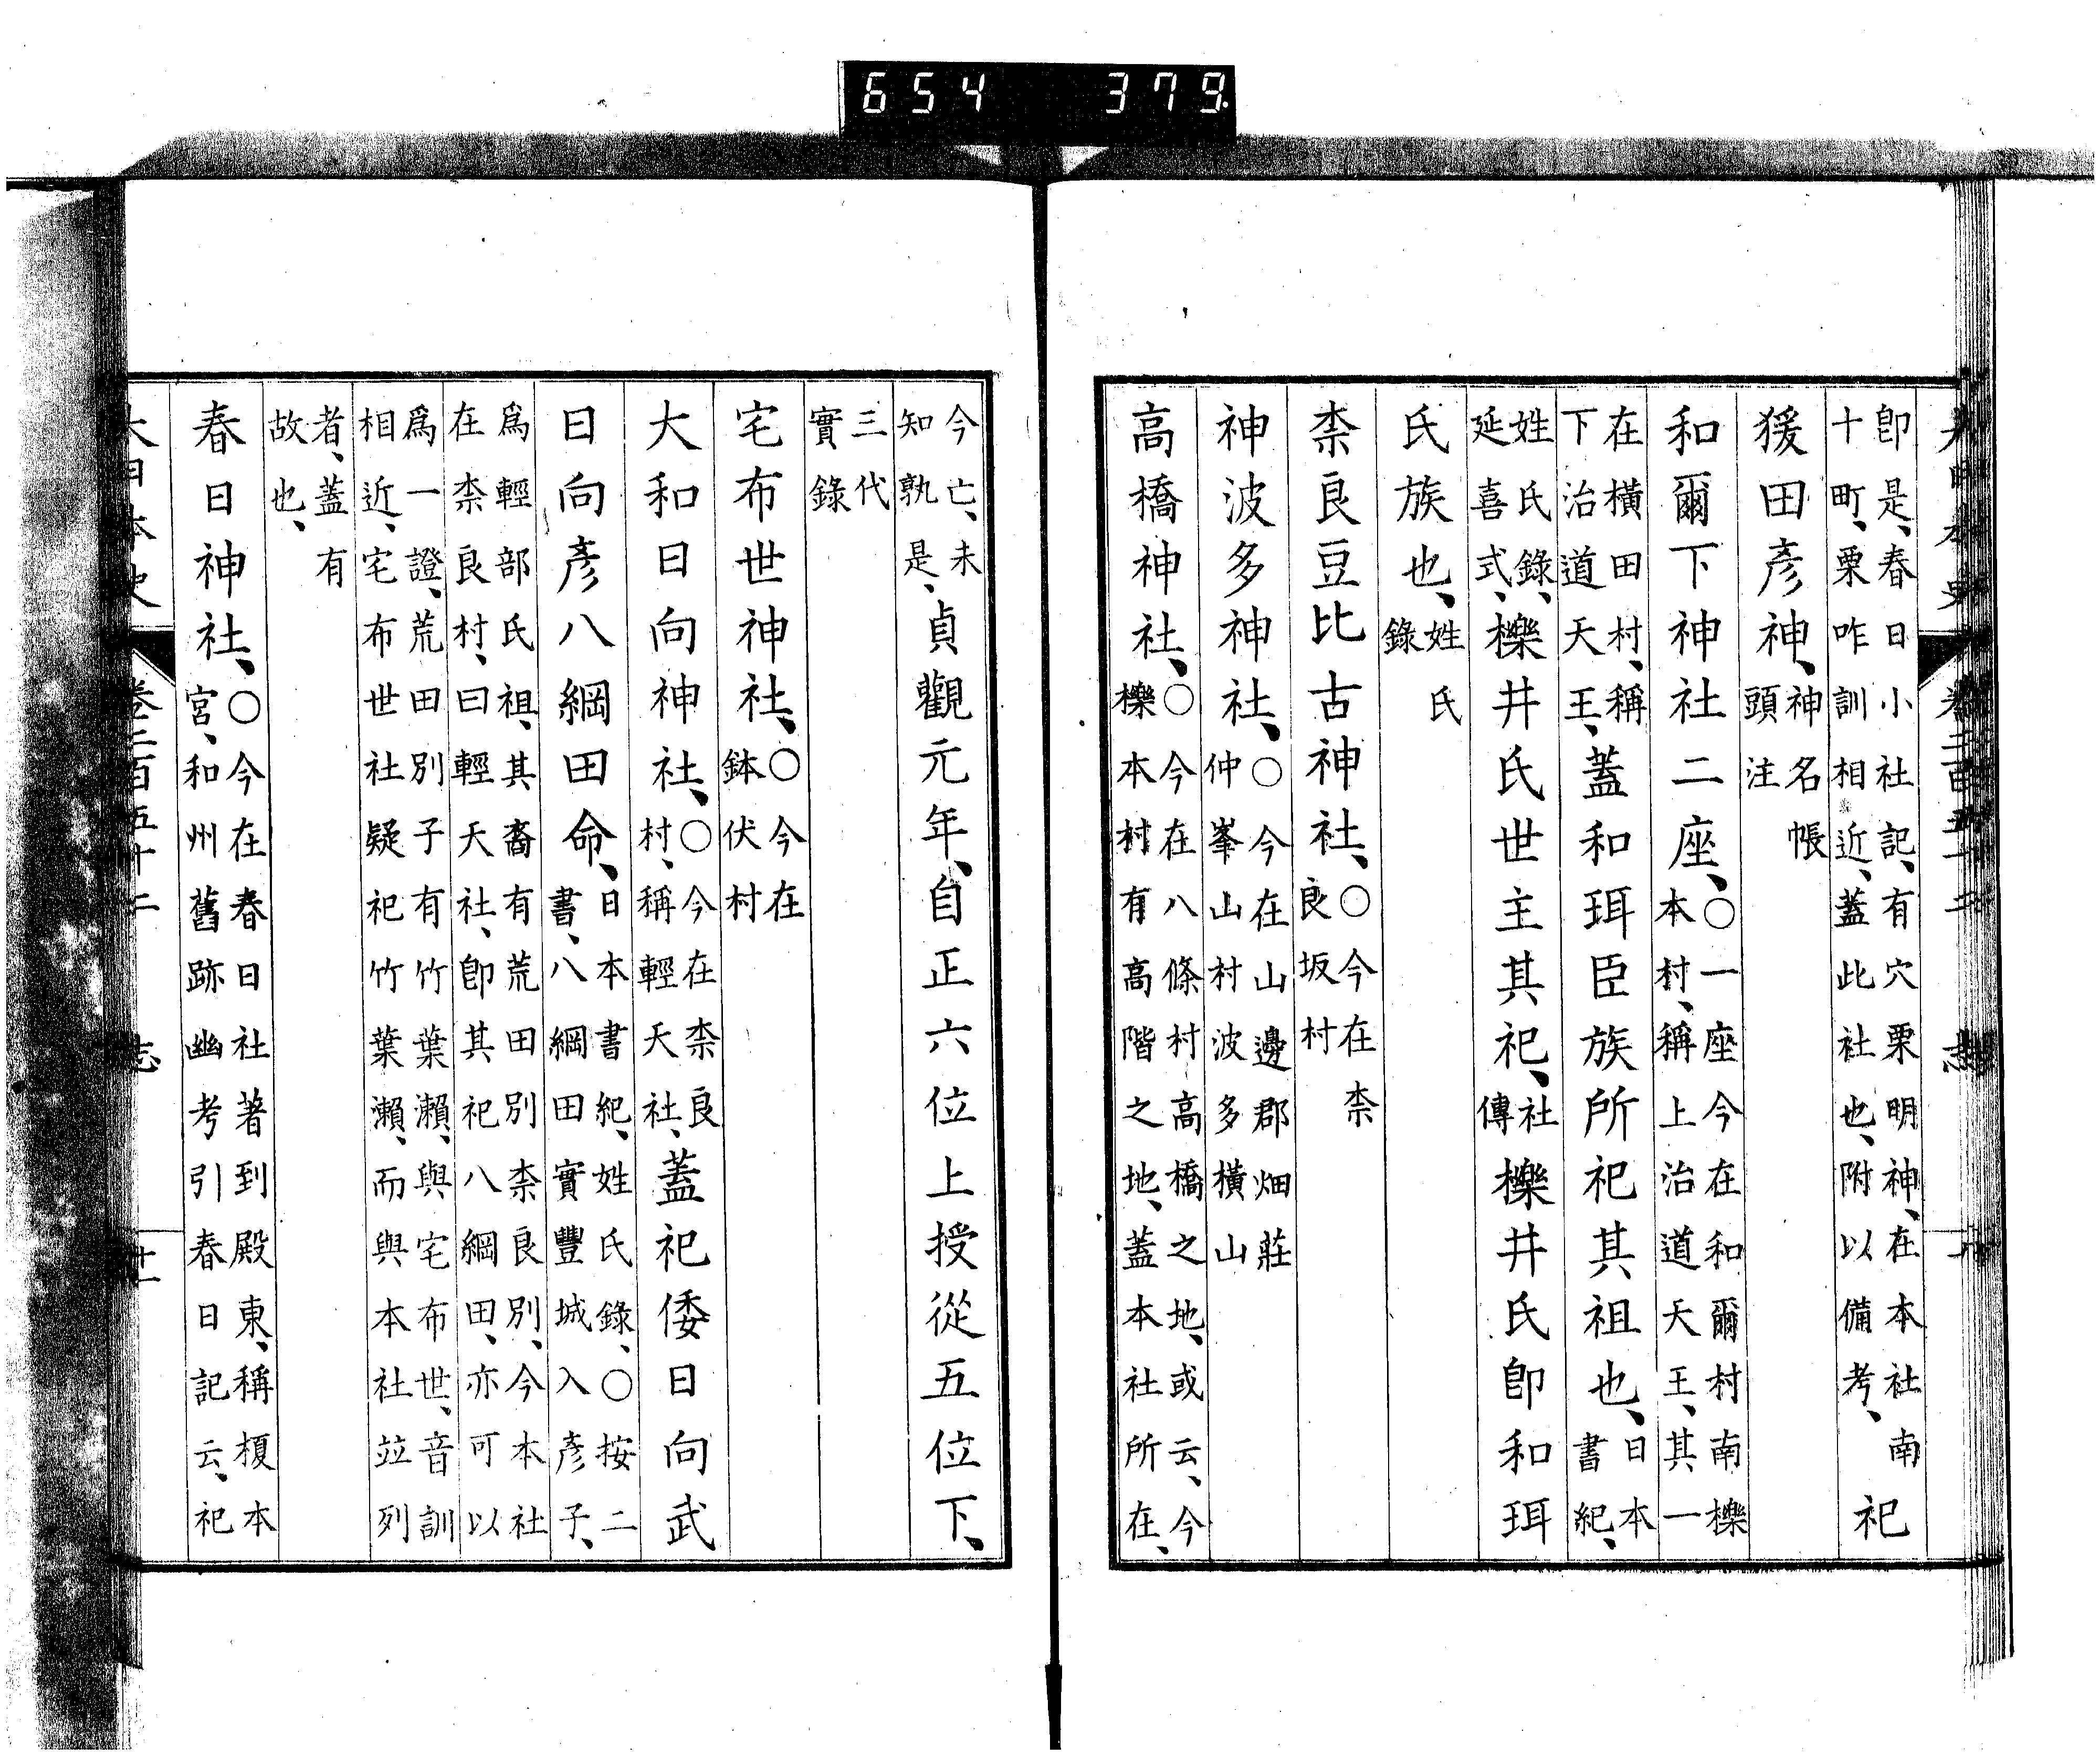 大日本史 卷二百五十二 志
卽是、春日小社記、有穴栗明神、在本社南十町、栗咋訓相近、蓋此社也、附以備考、祀
猨田彥神、神名帳頭注
和爾下神社二座、○一座今在和爾村南櫟本村、稱上治道天王、其一
在橫田村、稱下治道天王、蓋和珥臣族所祀其祖也、日本書紀、
姓氏錄、延喜式、櫟井氏世主其祀、社傳櫟井氏卽和珥
氏族也、姓氏錄
柰良豆比古神社、○今在柰良坂村
神波多神社、○今在山邊郡畑莊仲峯山村波多橫山
高橋神社、○今在八條村高橋之地、或云、今櫟本村有高階之地、蓋本社所在、
今亡、未知孰是、貞觀元年、自正六位上授從五位下、
三代實錄
宅布世神社、○今在鉢伏村
大和日向神社、○今在柰良村、稱輕天社、蓋祀倭日向武
日向彥八綱田命、日本書紀、姓氏錄、○按二書、八綱田實豐城入彥子、
爲輕部氏祖、其裔有荒田別柰良別、今本社在柰良村、曰輕天社、卽其祀八綱田、亦可以
爲一證、荒田別子有竹葉瀨、與宅布世、音訓相近、宅布世社疑祀竹葉瀨、而與本社竝列
者、蓋有故也、
春日神社、○今在春日社著到殿東、稱榎本宮、和州舊跡幽考引春日記云、祀
大日本史 卷二百五十二 志 十一
654 379